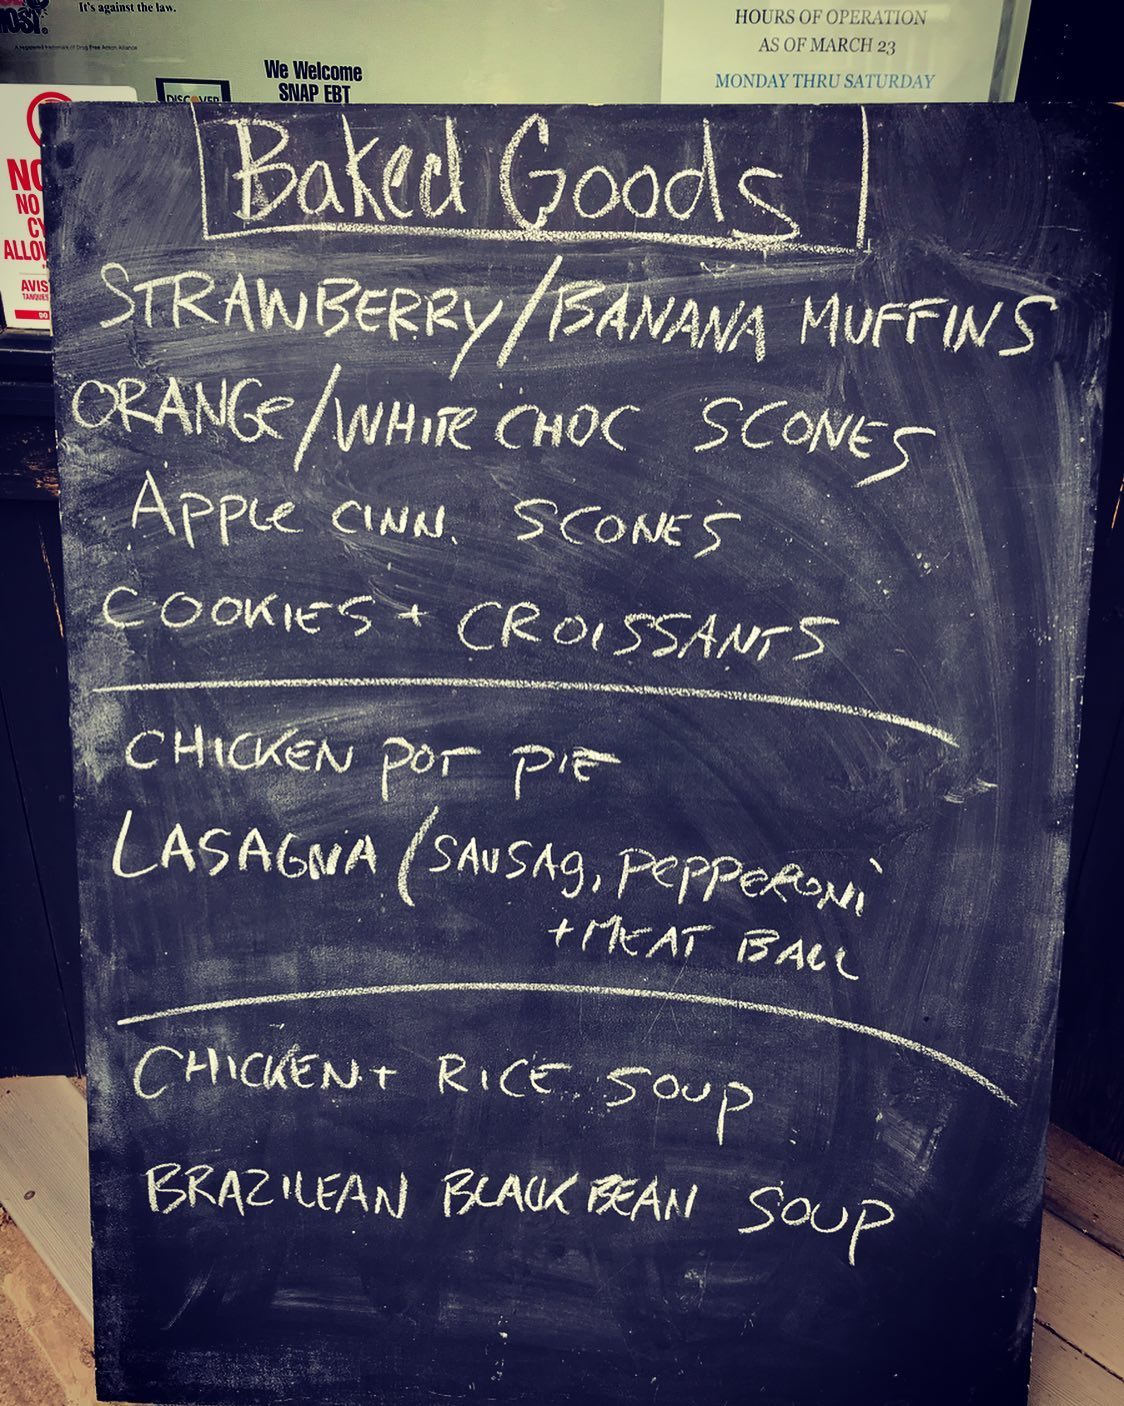 It's against the law.
A registered trademark of Drug Free Action Alliance
We Welcome
SNAP EBT
DISCOVER
HOURS OF OPERATION
AS OF MARCH 23
MONDAY THRU SATURDAY
NO
ALLOW
AVIS
TANQUES
DO
Baked Goods
STRAWBERRY/BANANA MUFFINS
ORANGE/WHITE CHOC SCONES
APPLE CINN. SCONES
COOKIES + CROISSANTS
CHICKEN POT PIE
LASAGNA / SAUSAG, PEPPERONI
+ MEAT BALL
CHICKEN + RICE SOUP
BRAZILEAN BLACK BEAN SOUP